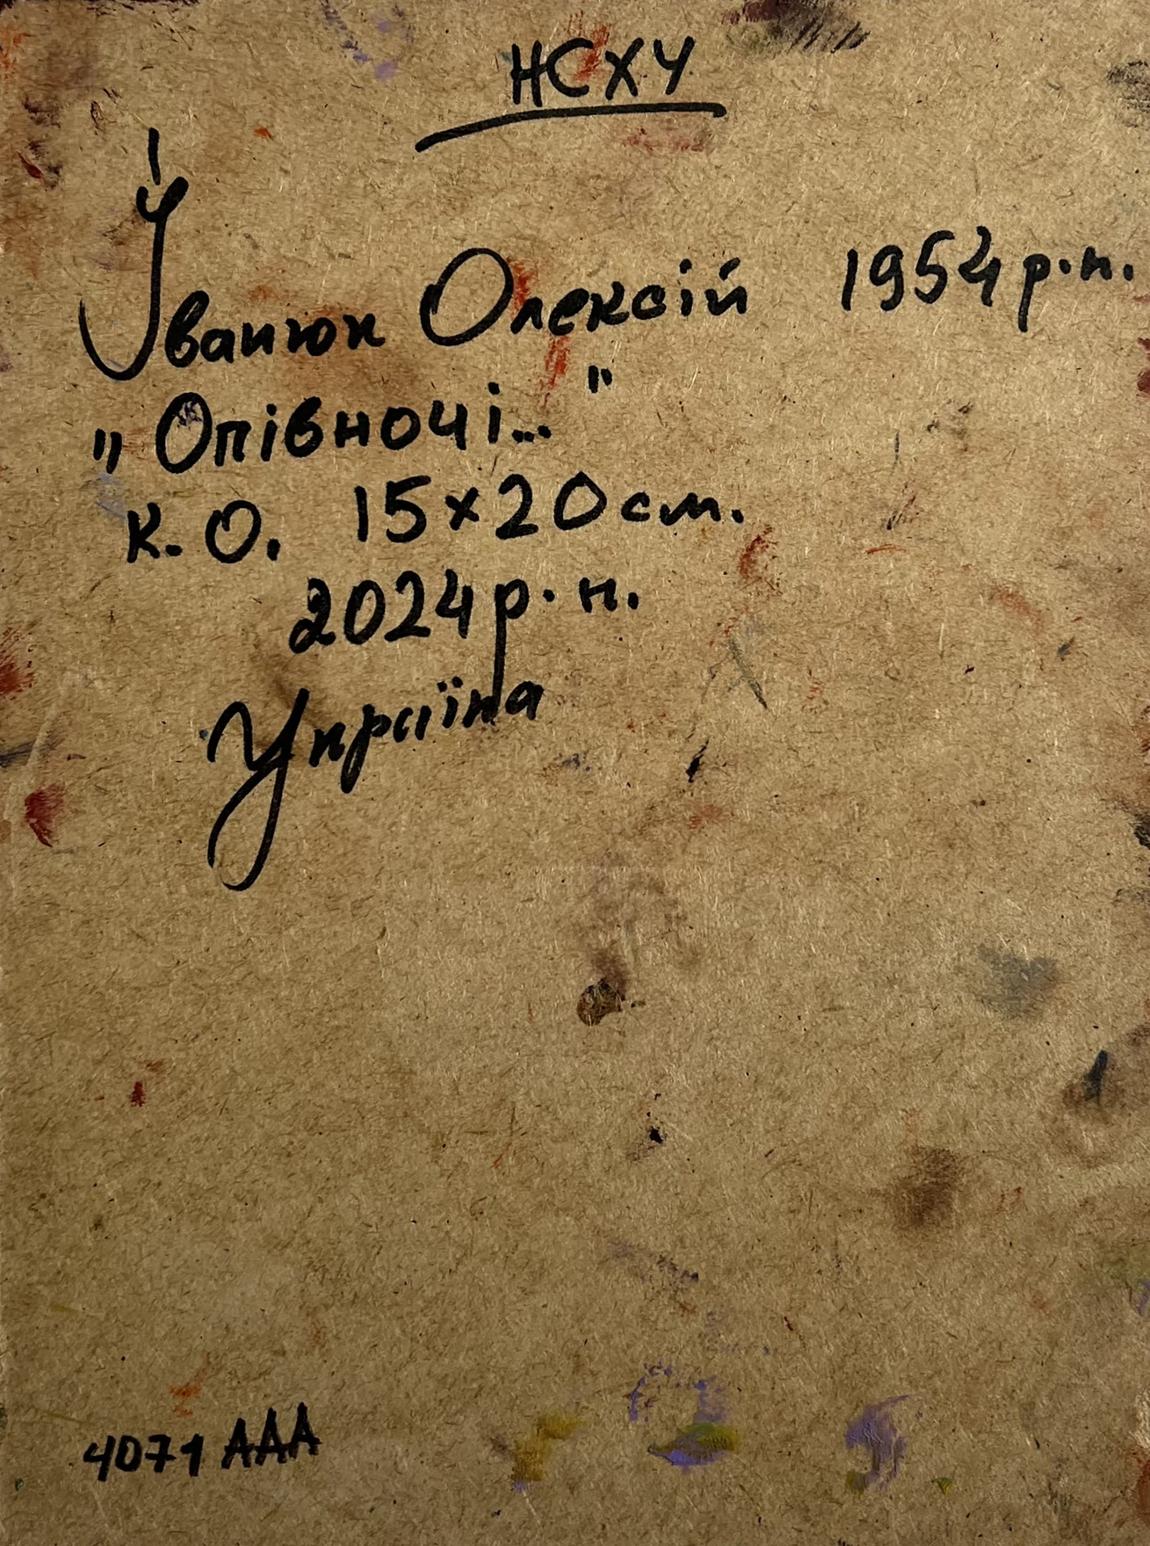 НСХУ
Іванюк Олексій 1954 р.н.
„Опівночі..."
К.О. 15x20 см.
2024 р.н.
Україна
4071 ААА